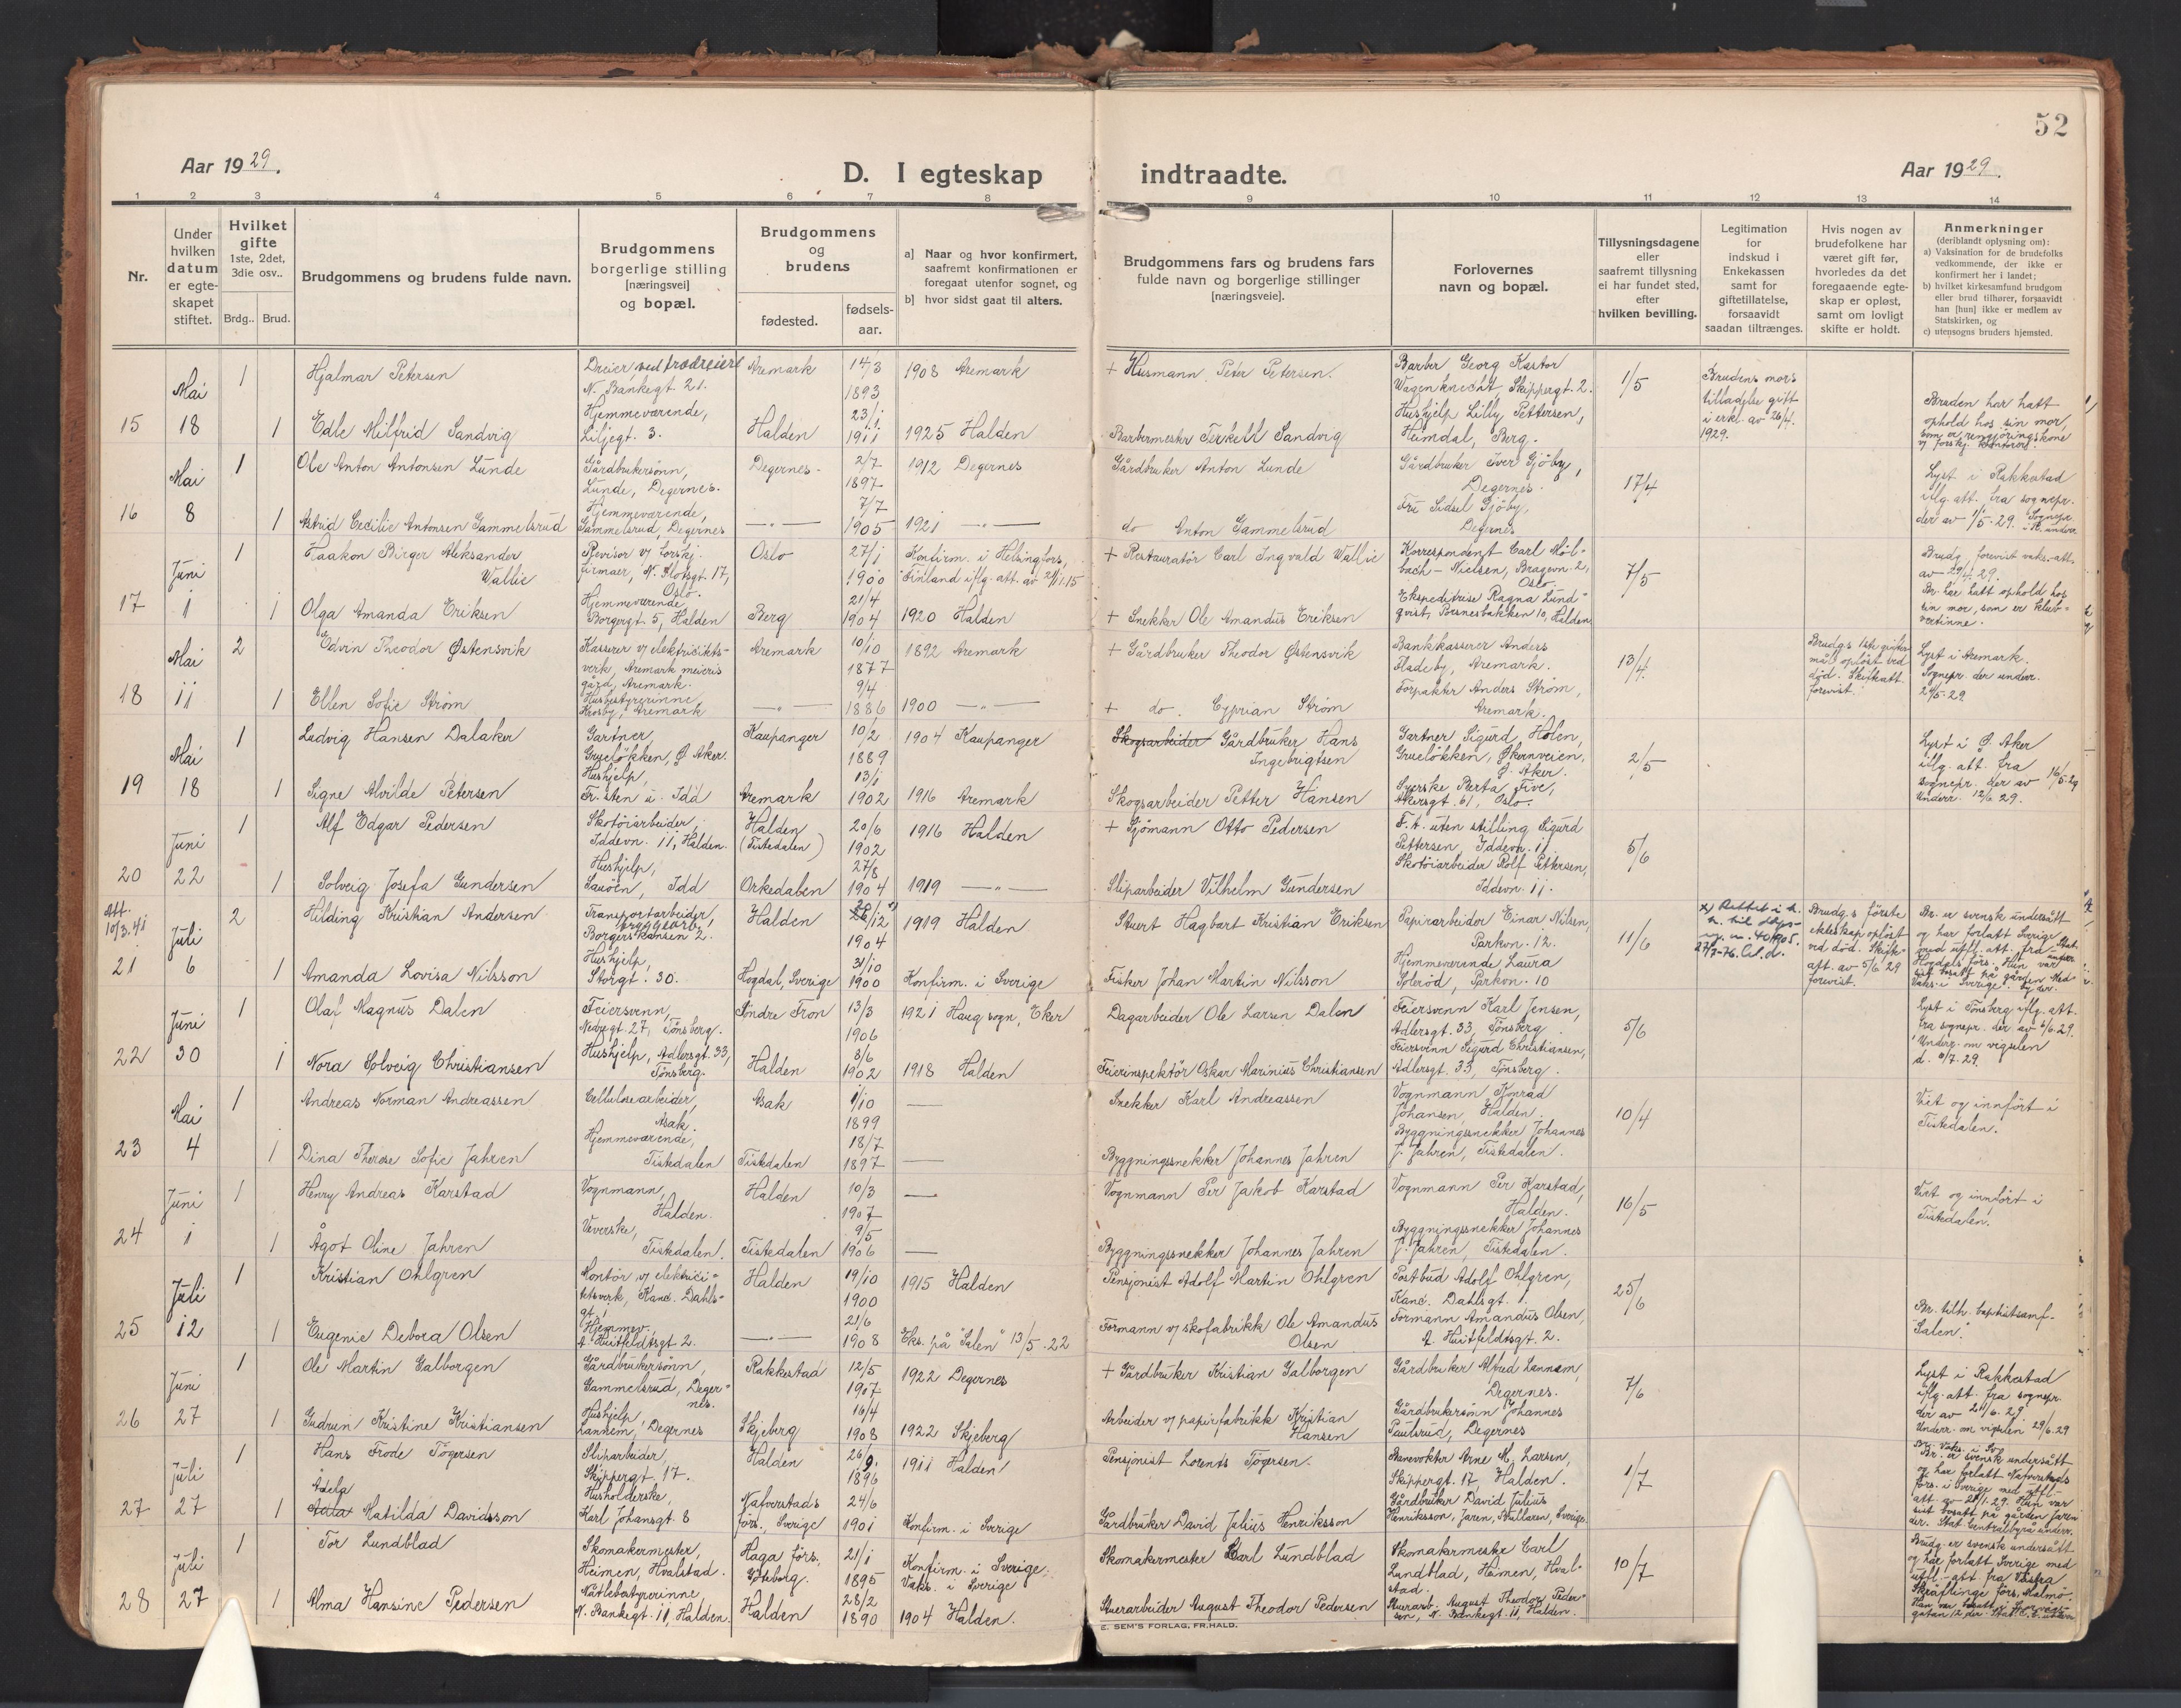 52
Aar 1929.
D. I egteskap indtraadte.
Aar 1929.
1 2 3 4 5 6 7 8 9 10 11 12 13 14
Nr.
Under hvilken datum er egteskapet stiftet.
Hvilket gifte 1ste, 2det, 3die osv..
Brdg.. Brud.
Brudgommens og brudens fulde navn.
Brudgommens borgerlige stilling [næringsvei] og bopæl.
Brudgommens og brudens
fødested.
fødsels-aar.
a] Naar og hvor konfirmert, saafremt konfirmationen er foregaat utenfor sognet, og
b] hvor sidst gaat til alters.
Brudgommens fars og brudens fars fulde navn og borgerlige stillinger [næringsveie].
Forlovernes navn og bopæl.
Tillysningsdagene eller saafremt tillysning ei har fundet sted, efter hvilken bevilling.
Legitimation for indskud i Enkekassen samt for giftetillatelse, forsaavidt saadan tiltrænges.
Hvis nogen av brudefolkene har været gift før, hvorledes da det foregaaende egteskap er opløst, samt om lovligt skifte er holdt.
Anmerkninger (deriblandt oplysning om):
a) Vaksination for de brudefolks vedkommende, der ikke er konfirmert her i landet;
b) hvilket kirkesamfund brudgom eller brud tilhører, forsaavidt han [hun] ikke er medlem av Statskirken, og
c) utensogns bruders hjemsted.
15 Mai 18 1 Hjalmar Petersen Dreier, N. Bankegt. 21. Aremark 14/3 1893 1908 Aremark + Husmann Peter Petersen. Barber Georg Kastor Wagenknecht Skippergt. 2. 1/5 Brudens mors tilladelse gift i erkl. av 26/4. 1929.
1 Edle Milfrid Sandvig Hjemmeværende, Liljegt. 3. Halden 23/1 1911 1925 Halden Barbermester Terkell Sandvig Hushjelp Lilly Pettersen, Heimdal, Berg. Bruden har hatt ophold hos sin mor, som er rengjøringskone
16 Mai 8 1 Ole Anton Antonsen Lunde Gårdbrukersønn, Lunde, Degernes. Degernes 2/7 1897 1912 Degernes Gårdbruker Anton Lunde Gårdbruker Iver Gjøby, Degernes. 17/4 Lyst i Rakkestad iflg. att. fra sognepr. der av 1/5. 29.
1 Astrid Cecilie Antonsen Gammelsrud Hjemmeværende, Gammelsrud, Degernes —"— 7/7 1905 1921 —"— do Anton Gammelsrud Fru Sidsel Gjøby, Degernes
17 Juni 1 1 Haakon Birger Aleksander Wallie Revisor v/ forskj. firmaer, N. Slotsgt. 17, Oslo. Oslo 27/1 1900 Konfirm. i Helsingfors, Finland iflg. att. av 21/1.15 + Restauratør Carl Ingvald Wallie Korrespondent Carl Møl-bach-Nielsen, Bragevn. 2, Oslo. 7/5 Brudg. forevist vaks.-att. av 29/4. 29.
1 Olga Amanda Eriksen Hjemmeværende, Borgergt. 5, Halden Berg 21/4 1904 1920 Halden + Snekker Ole Amandus Eriksen Ekspeditrise Ragna Lund-qvist, Busnesbakken 10, Halden Br. har hatt ophold hos sin mor, som er klub-vertinne.
18 Mai 11 2 Edvin Theodor Østensvik Kasserer v/ elektricitets-verk, Aremark meieris gård, Aremark. Aremark 10/10 1877 1892 Aremark + Gårdbruker Theodor Østensvik Bankkasserer Anders Fladeby, Aremark. 13/4. Brudg.s 1ste gifte-mål opløst ved død. Skifteatt. forevist. Lyst i Aremark. Sognepr. der underr. 24/5. 29.
1 Ellen Sofie Strøm Husbestyrerinne, Krosby, Aremark —"— 9/4 1886 1900 —"— + do. Cyprian Strøm Forpakter Anders Strøm, Aremark.
19 Mai 18 1 Ludvig Hansen Dalaker Gartner, Grueløkken, Ø. Aker. Kaupanger 10/2 1889 1904 Kaupanger Skogsarbeider Gårdbruker Hans Ingebrigtsen Gartner Sigurd Holen, Grueløkken, Økernveien, Ø. Aker. 2/5 Lyst i Ø. Aker iflg. att. fra sognepr. der av 16/5.29 Underr. 12/6. 29.
1 Signe Alvilde Petersen Hushjelp, Fr. sten u. Idd Aremark 13/1 1902 1916 Aremark Skogsarbeider Petter Hansen Syerske Berta Five, Akersgt. 61, Oslo.
20 Juni 22 1 Alf Edgar Pedersen Skotøiarbeider, Iddevn. 11, Halden. Halden (Tistedalen) 20/6 1902 1916 Halden + Sjømann Otto Pedersen F. t. uten stilling Sigurd Pettersen, Iddevn. 11. 5/6
1 Solveig Josefa Gundersen Hushjelp, Sauøen, Idd Orkedalen 27/8 1904 1919 —"— Sliparbeider Vilhelm Gundersen Skotøiarbeider Rolf Pettersen, Iddevn. 11.
Att. 10/3.41
21 Juli 6 2 Hilding Kristian Andersen Transportarbeider, Borgerskansen 2. Halden /12 1904 1919 Halden Stuert Hagbart Kristian Eriksen Papirarbeider Einar Nilsen, Parkvn. 12. 11/6 Brudg.s første ekteskap opløst ved død. Skifte-att. av 5/6 29 forevist. Br. er svensk undersått og har forlatt Sverige
1 Amanda Lovisa Nilsson Hushjelp, Storgt. 30. Hogdal, Sverige 31/10 1900 Konfirm. i Sverige Fisker Johan Martin Nilsson Hjemmeværende Laura Solerød, Parkvn. 10
22 Juni 30 1 Olaf Magnus Dalen Feiersvenn, Nedregt. 27, Tønsberg. Søndre Fron 13/3 1906 1921 Haug sogn, Eker Dagarbeider Ole Larsen Dalen Feiersvenn Karl Jensen, Adlersgt. 33, Tønsberg 5/6 Lyst i Tønsberg iflg. att. fra sognepr. der av 6/6. 29. Underr. om vigselen d. 8/7. 29.
1 Nora Solveig Christiansen Hushjelp, Adlersgt. 33, Tønsberg. Halden 8/6 1902 1918 Halden Feierinspektør Oskar Marinius Christiansen Feiersvenn Sigurd Christiansen, Adlersgt. 33, Tønsberg.
23 Mai 4 1 Andreas Norman Andreassen Cellulosearbeider, Asak. Asak 1/10 1899 — Snekker Karl Andreassen Vognmann Konrad Johansen, Halden. 10/4 Viet og innført i Tistedalen.
1 Dina Therese Sofie Jahren Hjemmeværende, Tistedalen Tistedalen 18/7 1897 — Byggningssnekker Johannes Jahren Byggningssnekker Johannes J. Jahren, Tistedalen.
24 Juni 1 1 Henry Andreas Karstad Vognmann, Halden. Halden 10/3 1907 — Vognmann Per Jakob Karstad Vognmann Per Karstad, Halden. 16/5 Viet og innført i Tistedalen.
1 Ågot Oline Jahren Veverske, Tistedalen. Tistedalen 9/5 1906 — Byggningssnekker Johannes Jahren Byggningssnekker Johannes J. Jahren, Tistedalen.
25 Juli 12 1 Kristian Ohlgren Kontor. v/ elektrici-tetsverk, Kanc. Dahls-gt. 1. Halden 19/10 1900 1915 Halden Pensjonist Adolf Martin Ohlgren Postbud Adolf Ohlgren, Kanc. Dahlsgt. 1. 25/6
1 Eugenie Debora Olsen Hjemmev. A. Huitfeldtsgt. 2. —"— 21/6 1908 Eks. på "Salen" 13/5.22 Formann v/ skofabrikk Ole Amandus Olsen Formann Amandus Olsen, A. Huitfeldtsgt. 2. Br. tilh. baptistsamf. "Salen".
26 Juni 27 1 Ole Martin Galborgen Gårdbrukersønn, Gammelsrud, Deger-nes. Rakkestad 12/5 1907 1922 Degernes + Gårdbruker Kristian Galborgen Gårdbruker Alfred Lannem, Degernes. 7/6 Lyst i Rakkestad iflg. att. fra sognepr. der av 24/6. 29 Underr. om vigselen 29/6.29
1 Gudrun Kristine Kristiansen Hushjelp, Lannem, Degernes Skjeberg 16/4 1908 1922 Skjeberg Arbeider v/ papirfabrikk Kristian Hansen Gårdbrukersønn Johannes Paulsrud, Degernes
27 Juli 27 1 Hans Frode Tøgersen Sliparbeider, Skippergt. 17. Halden 26/9. 1896 1911 Halden Pensjonist Lorents Tøgersen. Banevokter Arne M. Larsen, Skippergt. 17, Halden. 1/7 Br. er svensk undersått og har forlatt Nafverstads førs. i Sverige
1 Adela Matilda Davidsson Husholderske, Karl Johansgt. 8 Nafverstads førs., Sverige 24/6 1901 Konfirm. i Sverige Gårdbruker David Julius Henriksson Gårdbruker David Julius Henriksson, Jaren, Mullaren, Sverige.
28 Juli 27 1 Tor Lundblad Skomakermester, Heimen, Hvalstad. Haga førs., Gøteborg. 21/1 1895 Konfirm. i Sverige. Vaks. i Sverige Skomakermester Karl Lundblad Skomakermester Carl Lundblad, Heimen, Hval-stad. 10/7 Brudg. er svensk undersått og har forlatt Sverige med utfl.-att. fra Västra Skräflinge førs. Malmø.
1 Alma Hansine Pedersen N. Bankegt. 11, Halden. Halden 28/2 1890 1904 Halden. Stuerarbeider August Theodor Pedersen Stuerarb. August Theodor Peder-sen, N. Bankegt. 11, Halden.
E. SEM'S FORLAG, FR.HALD.